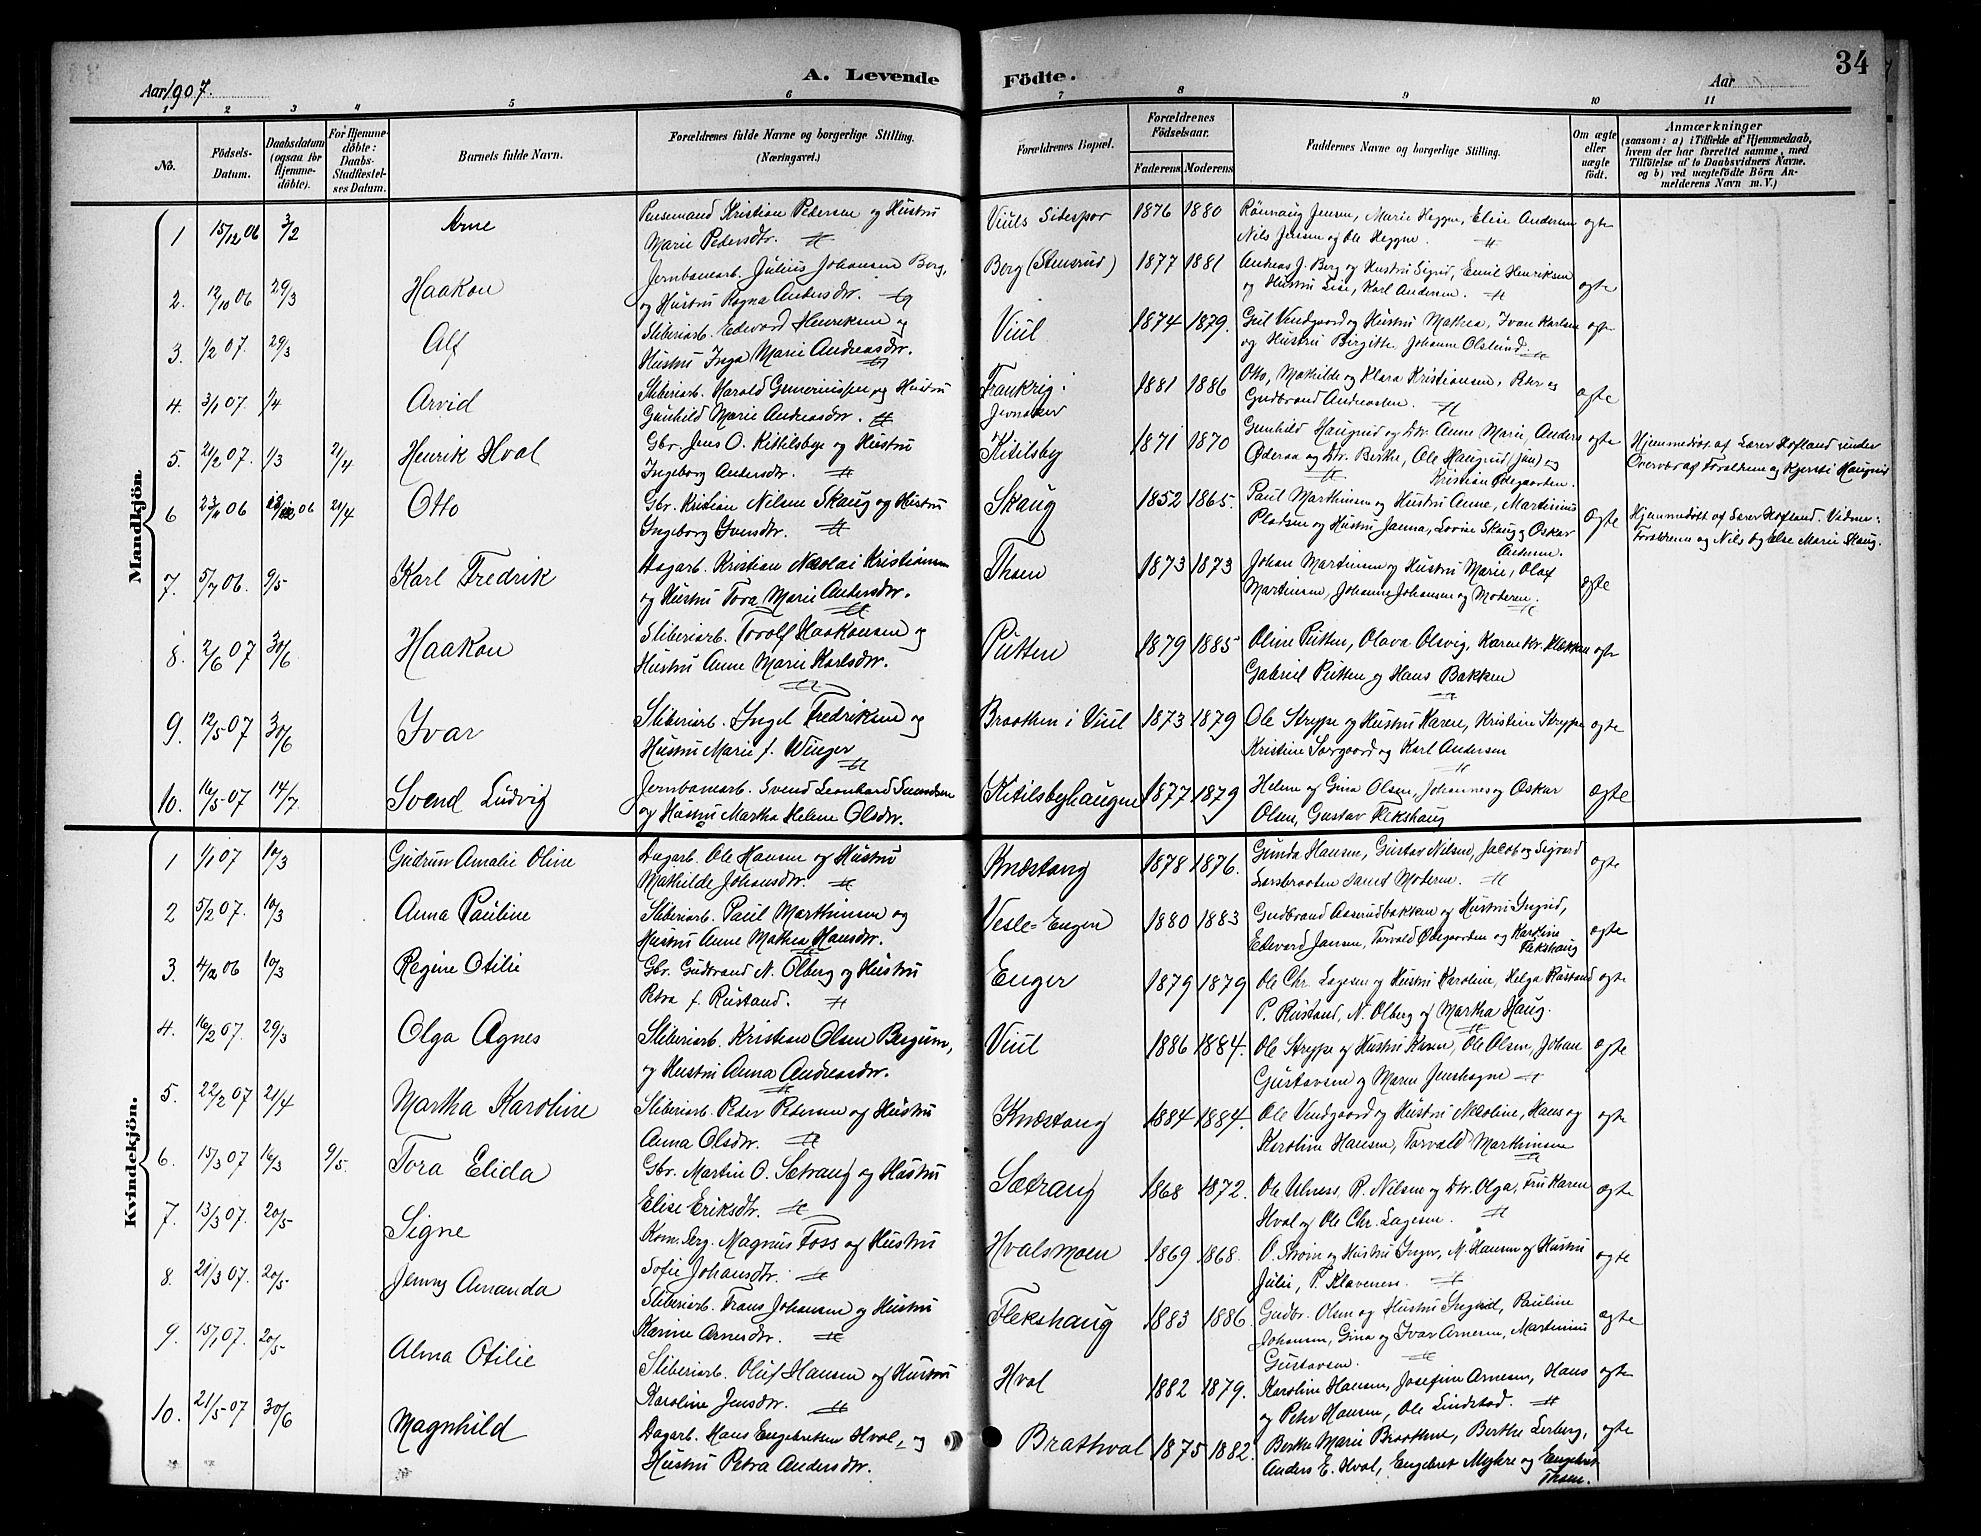 34
Aar 1907.
A. Levende Födte.
Aar
1 2 3 4 5 6 7 8 9 10 11
No.
Födsels-Datum.
Daabsdatum (ogsaa for Hjemme-döbte).
For Hjemme-döbte: Daabs-Stadfæstel-ses Datum.
Barnets fulde Navn.
Forældrenes fulde Navne og borgerlige Stilling. (Næringsvei.)
Forældrenes Bopæl.
Forældrenes Födselsaar.
Faderens Moderens
Faddernes Navne og borgerlige Stilling.
Om ægte eller uægte födt.
Anmærkninger
(saasom: a) i Tilfælde af Hjemmedaab, hvem der har forrettet samme, med Tilföielse af to Daabsvidners Navne. og b) ved uægtefödte Börn Anmelderens Navn m. V.)
Mandkjön.
1 15/12 06 3/2 Arne
Kristian Pedersen og Hustru
Marie Pedersdtr.
Viuls Sidespor 1876 1880
Rönnaug Jensen, Marie Heggen, Elise Andersen
Nils Jensen og Ole Heggen. ægte
2. 12/10 06 29/3 Haakon
Jernbanearb. Julius Johansen Berg,
og Hustru Ragna Andersdtr.
Berg (Stensrud) 1877 1881
Andreas J. Berg og Hustru Sigrid, Emil Henriksen
og Hustru Lise, Karl Andersen. ægte
3. 1/2 07. 29/3 Alf
Sliberiarb. Edvard Henriksen og
Hustru Inga Marie Andreasdtr.
Viul 1874 1879.
og Hustru Mathea, Ivar Karlsen
og Hustru Birgitte, Johanne Olslund. ægte
4. 3/1 07. 1/4 Arvid
Sliberiarb. Harald og Hustru
Gunhild Marie Andreasdtr.
Frankrig i
Jevnaker 1881 1886
Otto, Mathilde og Klara Kristiansen, Peter og
Gudbrand Andreassen. ægte
5. 21/2 07. 1/3 21/4 Henrik Hval
Gbr. Jens O. Kittilsbye og Hustru
Ingeborg Andersdtr.
Kitilsby 1871 1870
Gunhild Haugrud og Dtr. Anne Marie, Anders
Øderaa og Dtr. Berthe, Ole Haugrud (jun) og
Kristian Ødegaarden. ægte
Hjemmedöbt af Lærer Hofland under
Overvær af Forældrene og Kjersti Haugrud
6 23/11 06 06 21/4 Otto
Gbr. Kristian Nilsen Skaug og Hustru
Ingeborg Svensdtr.
Skaug 1852 1865.
Paul Marthinsen og Hustru Anne, Martinius
Pladsen og Hustru Janna, Lovise Skaug og Oskar
Andersen. ægte
Hjemmedöbt af Lærer Hofland. Vidner:
Forældrene og Nils og Else Marie Skaug.
7. 5/7 06. 9/5 Karl Fredrik
Dagarb. Kristian Nicolai Kristiansen
og Hustru Tora Marie Andersdtr.
Thoen 1873 1873
Johan Martinsen og Hustru Marie, Olaf
Martinsen, Johanne Johansen og Moderen. ægte
8. 2/6 07 30/6 Haakon
Sliberiarb. Torolf Haakonsen og
Hustru Anne Marie Karlsdtr.
Putten 1879 1885
Oline Putten, Olava Olsvig, Karen Kr. Klækken
Gabriel Putten og Hans Bakken ægte
9. 12/5 07 30/6 Ivar
Sliberiarb. Ingel Fredriksen og
Hustru Marie f. Winger
Braathen i Viul 1873 1879
Ole Strype og Hustru Karen, Kristine Strype
Kristine Sörgaard og Karl Andersen ægte
10. 16/5 07 14/7 Svend Ludvig
Jernbanearb. Svend Leonhard Svendsen
og Hustru Martha Helene Olsdtr.
Kitilsbyhaugen 1877 1879
Helene og Gina Olsen, Johannes og Oskar
Olsen, Gustav Flekshaug ægte
Kvindekjön.
1 1/1 07 10/3 Gudrun Amalie Oline
Dagarb. Ole Hansen og Hustru
Mathilde Johansdtr.
Knæstang 1878 1876.
Gunda Hansen, Gustav Nilsen, Jacob og Sigvard
Larsbraaten samt Moderen. ægte
2 5/2 07. 10/3 Anna Pauline
Sliberiarb. Paul Marthinsen og
Hustru Anne Mathea Hansdtr.
Vesle-Engen 1880 1883
Gudbrand Aaserudbakken og Hustru Ingrid,
Edvard Jansen, Torvald Ødegaarden og Karoline
Flekshaug ægte
3. 4/12 06 10/3 Regine Otilie
Gbr. Gudbrand N. Olberg og Hustru
Petra f. Rustand.
Enger 1879 1879
Ole Chr. Lagesen og Hustru Karoline, Helga Rustand
P. Rustand, N. Olberg og Martha Haug. ægte
4. 16/2 07. 29/3 Olga Agnes
Sliberiarb. Kristian Olsen Bergum,
og Hustru Anna Andreasdtr.
Viul 1886 1884.
Ole Strype og Hustru Karen, Ole Olsen, Johan
Gustavsen og Maren Jenshagen ægte
5. 22/2 07 21/4 Martha Karoline
Sliberiarb. Peder Pedersen og Hustru
Anna Olsdtr.
Knæstang 1884 1884.
Ole Vendgaard og Hustru Nicoline, Hans og
Karoline Hansen, Torvald Marthinsen ægte
6. 15/3 07 16/3 9/5. Tora Elida
Gbr. Martin O. Sætrang og Hustru
Elise Eriksdtr.
Sætrang 1868 1872.
Ole Ulness, R. Nilsen og Dtr. Olga, Fru Karen
Hval og Ole Chr. Lagesen. ægte
7. 13/3 07. 20/5 Signe
Kom. Serg. Magnus Foss og Hustru
Sofie Johansdtr.
Hvalsmoen 1869 1868.
O. og Hustru Inger, M. Hansen og Hustru
Julie, T. Klavenes. ægte
8. 21/3 07. 20/5 Jenny Amanda
Sliberiarb. Frans Johansen og Hustru
Karine Arnesdtr.
Flekshaug 1883 1886.
Gudbr. Olsen og Hustru Ingrid, Pauline
Johansen, Gina og Ivar Arnesen, Martinius
Gustavsen. ægte
9. 15/1 07. 20/5 Alma Otilie
Sliberiarb. Oluf Hansen og Hustru
Karoline Jensdtr.
Hval 1882 1879.
Karoline Hansen, Josefine Arnesen, Hans
og Peter Hansen, Ole Lindstad. ægte
10. 21/5 07 30/6 Magnhild
Dagarb. Hans Engebretsen Hval, og
Hustru Petra Andersdtr.
Bratthval 1875 1882.
Berthe Marie Braathen, Berthe Lerberg,
Anders E. Hval, Engebret Myhre og Engebret
Thoen. ægte